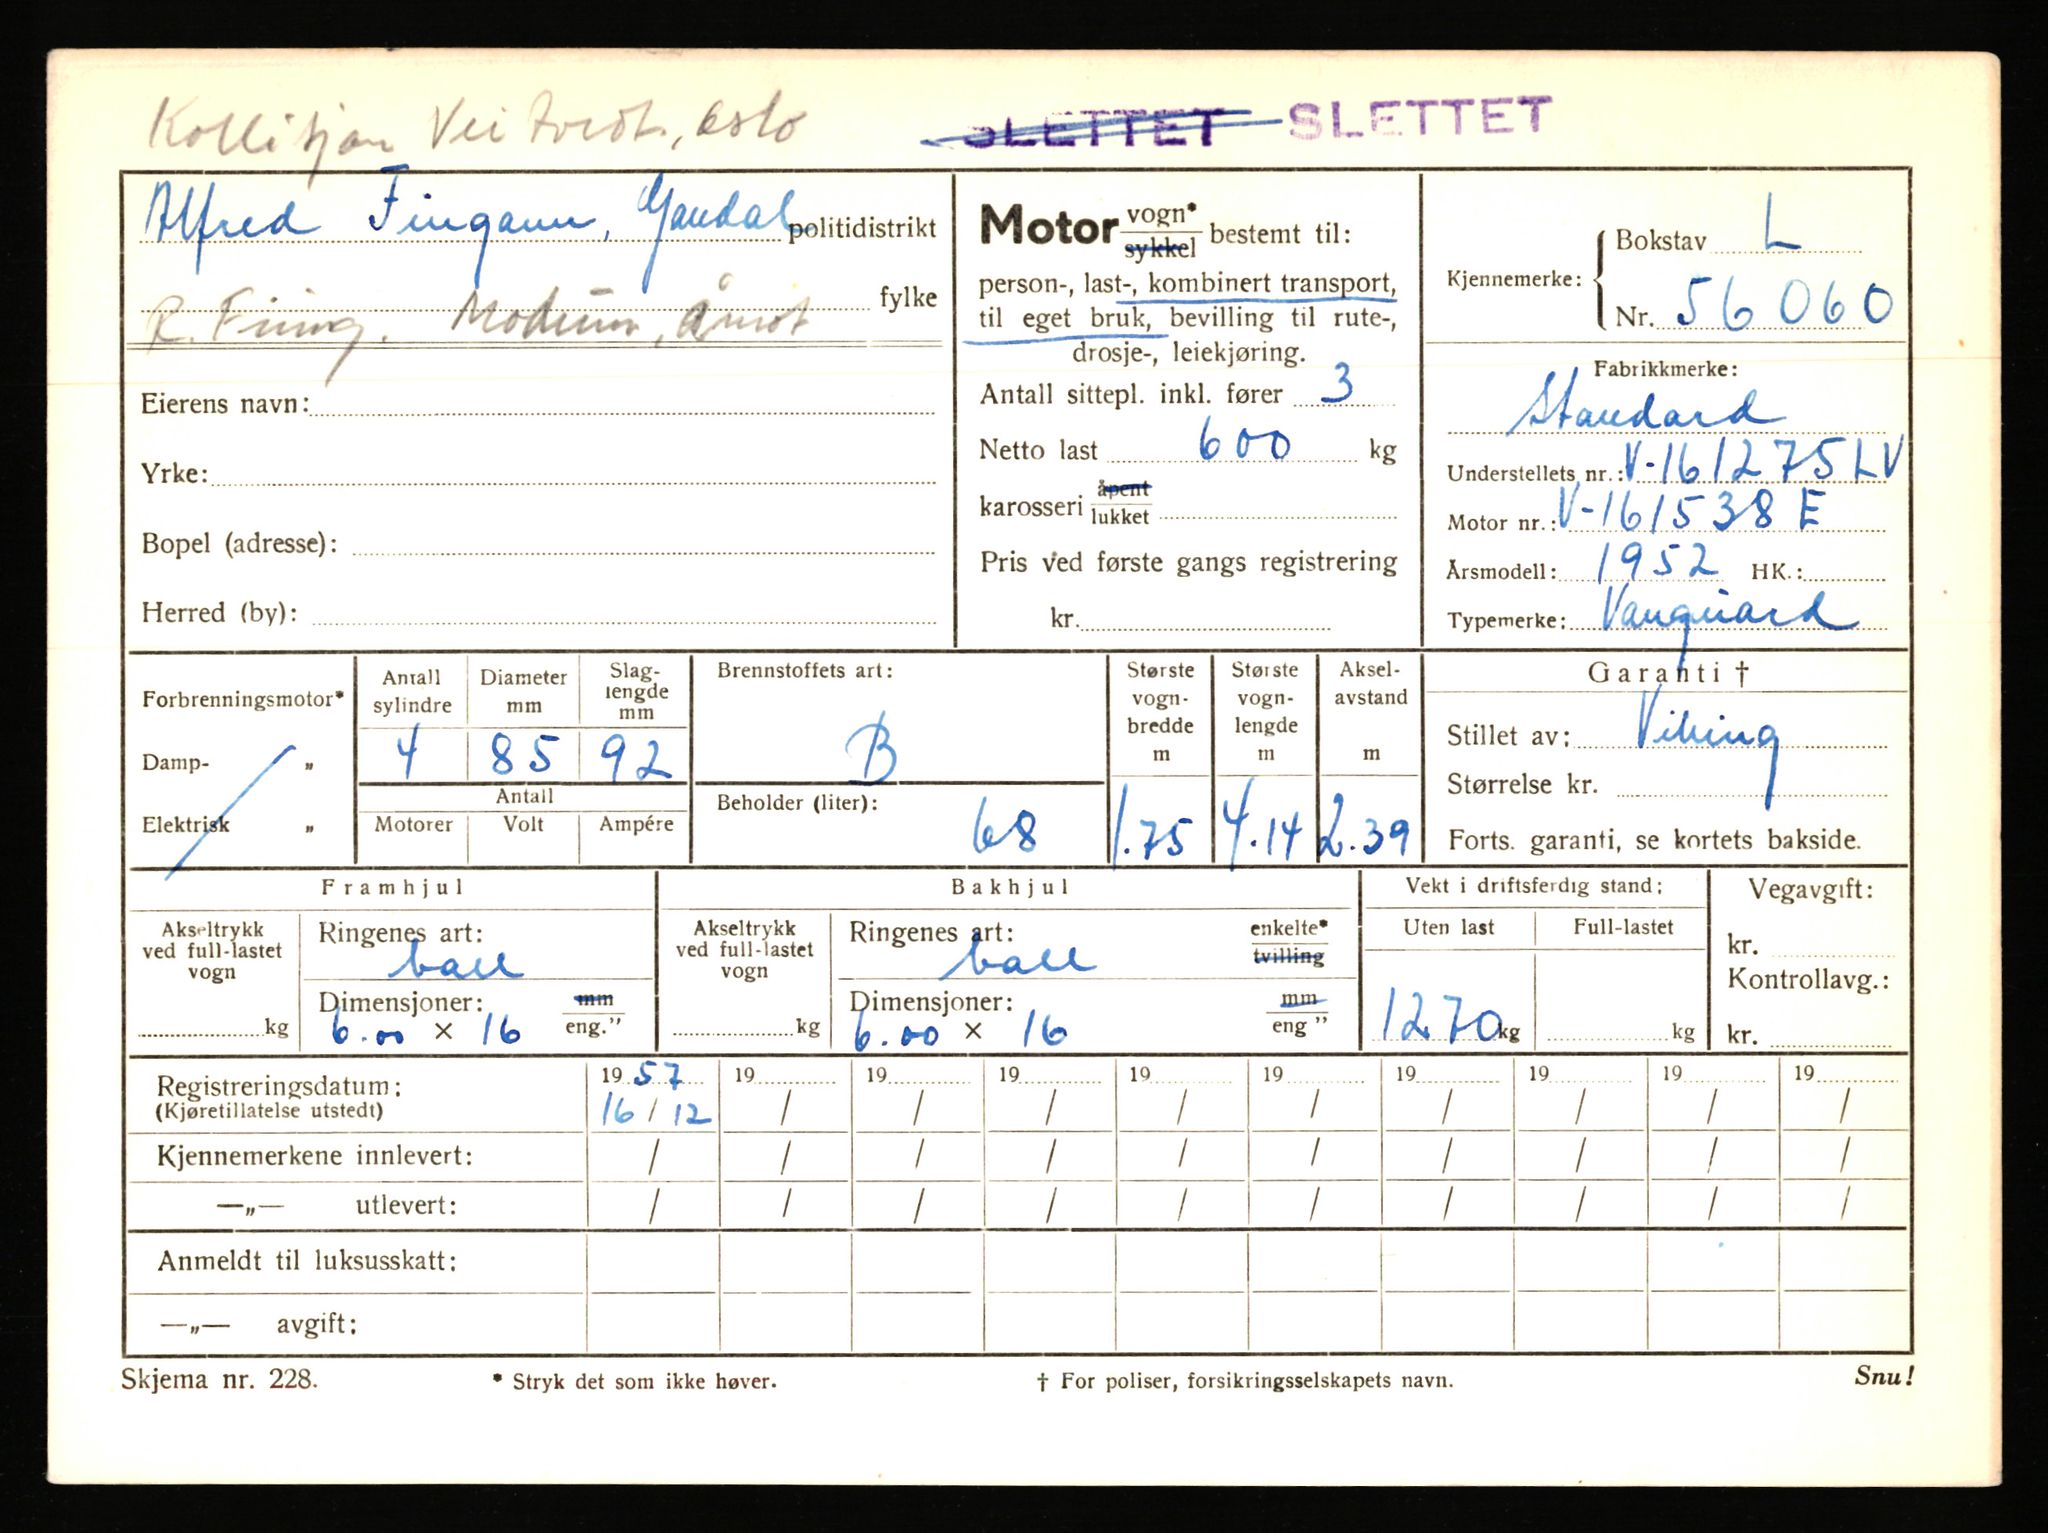 Veitvedt, Oslo
SLETTET SLETTET
Alfred Fingann, Gandal politidistrikt
R. Fining. Modum, Åmot fylke
Eierens navn:
Yrke:
Bopel (adresse):
Herred (by):
Motor vogn* sykkel bestemt til:
person-, last-, kombinert transport,
til eget bruk, bevilling til rute-,
drosje-, leiekjøring.
Antall sittepl. inkl. fører 3
Netto last 600 kg
karosseri åpent lukket
Pris ved første gangs registrering
kr.
Kjennemerke: Bokstav L
Nr. 56060
Fabrikkmerke:
Standard
Understellets nr.: V-161275LV
Motor nr.: V-161538 E
Årsmodell: 1952 HK.:
Typemerke: Vanguard
Forbrenningsmotor*
Damp- „
Elektrisk „
Antall sylindre Diameter mm Slag-lengde mm
4 85 92
Antall
Motorer Volt Ampére
Brennstoffets art:
B
Beholder (liter):
68
Største vogn-bredde m Største vogn-lengde m Aksel-avstand m
1.75 4.14 2.39
Garanti †
Stillet av: Viking
Størrelse kr.
Forts. garanti, se kortets bakside.
Framhjul
Akseltrykk ved full-lastet vogn
kg
Ringenes art:
ball
Dimensjoner: mm
6.00 × 16 eng."
Bakhjul
Akseltrykk ved full-lastet vogn
kg
Ringenes art: enkelte* tvilling
ball
Dimensjoner: mm
6.00 × 16 eng"
Vekt i driftsferdig stand:
Uten last Full-lastet
1270 kg kg
Vegavgift:
kr.
Kontrollavg.:
kr.
Registreringsdatum: 1957 19 19 19 19 19 19 19 19 19
(Kjøretillatelse utstedt) 16/12 / / / / / / / / /
Kjennemerkene innlevert: / / / / / / / / / /
—„— utlevert: / / / / / / / / / /
Anmeldt til luksusskatt:
—„— avgift:
Skjema nr. 228. * Stryk det som ikke høver. † For poliser, forsikringsselskapets navn. Snu!